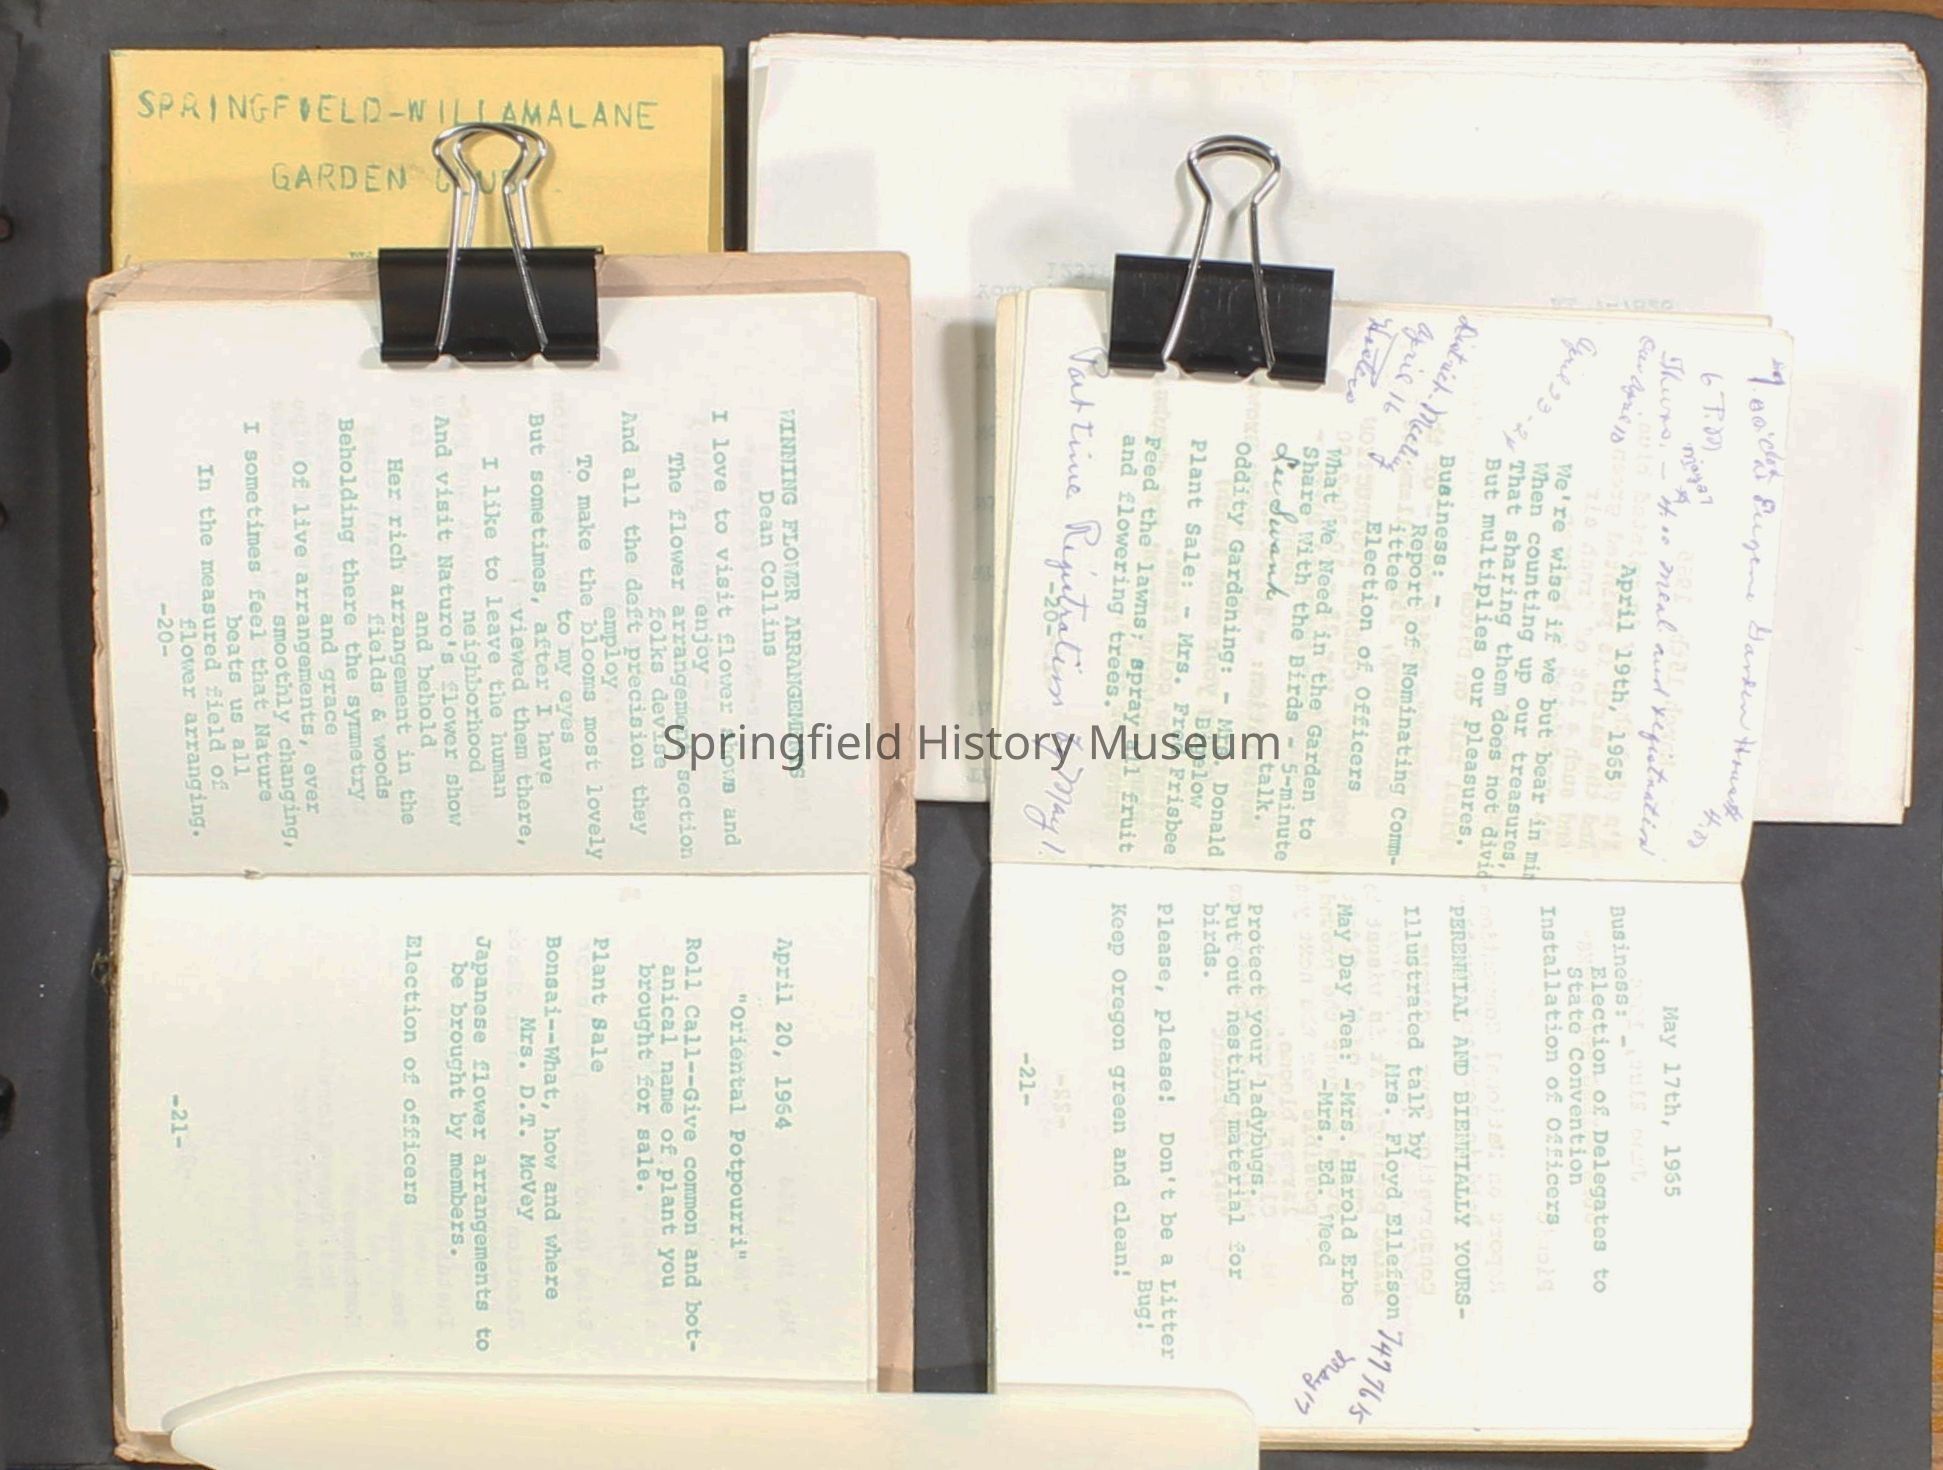 SPRINGFIELD-WILLAMALANE
GARDEN CLUB
WINNING FLOWER ARRANGEMENTS
Dean Collins
I love to visit flower shows and
enjoy
The flower arrangement section
folks devise
And all the deft precision they
employ
To make the blooms most lovely
to my eyes
But sometimes, after I have
viewed them there,
I like to leave the human
neighborhood
And visit Nature's flower show
and behold
Her rich arrangement in the
fields & woods
Beholding there the symmetry
and grace
Of live arrangements, ever
smoothly changing,
I sometimes feel that Nature
beats us all
In the measured field of
flower arranging.
-20-
April 20, 1964
"Oriental Potpourri"
Roll Call--Give common and bot-
anical name of plant you
brought for sale.
Plant Sale
Bonsai--What, how and where
Mrs. D.T. McVey
Japanese flower arrangements to
be brought by members.
Election of officers
-21-
Eugene Garden House
6 P.M.
Thurs. - meal and registration
April 19th, 1965
We're wise if we but bear in min
When counting up our treasures,
That sharing them does not divid
But multiplies our pleasures.
District Meeting
April 16
Business: -
Report of Nominating Comm-
ittee
Election of Officers
What We Need in the Garden to
Share With the Birds - 5-minute
talk.
Sue Swank
Oddity Gardening: - Mrs. Donald
Barlow
Plant Sale: - Mrs. Fred Frisbee
Feed the lawns; spray all fruit
and flowering trees.
-20-
Part time Registration by May 1.
May 17th, 1965
Business: -
Election of Delegates to
State Convention
Installation of Officers
PERENNIAL AND BIENNIALLY YOURS-
Illustrated talk by
Mrs. Floyd Ellefson 7479765
May Day Tea: -Mrs. Harold Erbe
-Mrs. Ed. Weed
Protect your ladybugs.
Put out nesting material for
birds.
Please, please! Don't be a Litter
Bug!
Keep Oregon green and clean!
-21-
Springfield History Museum